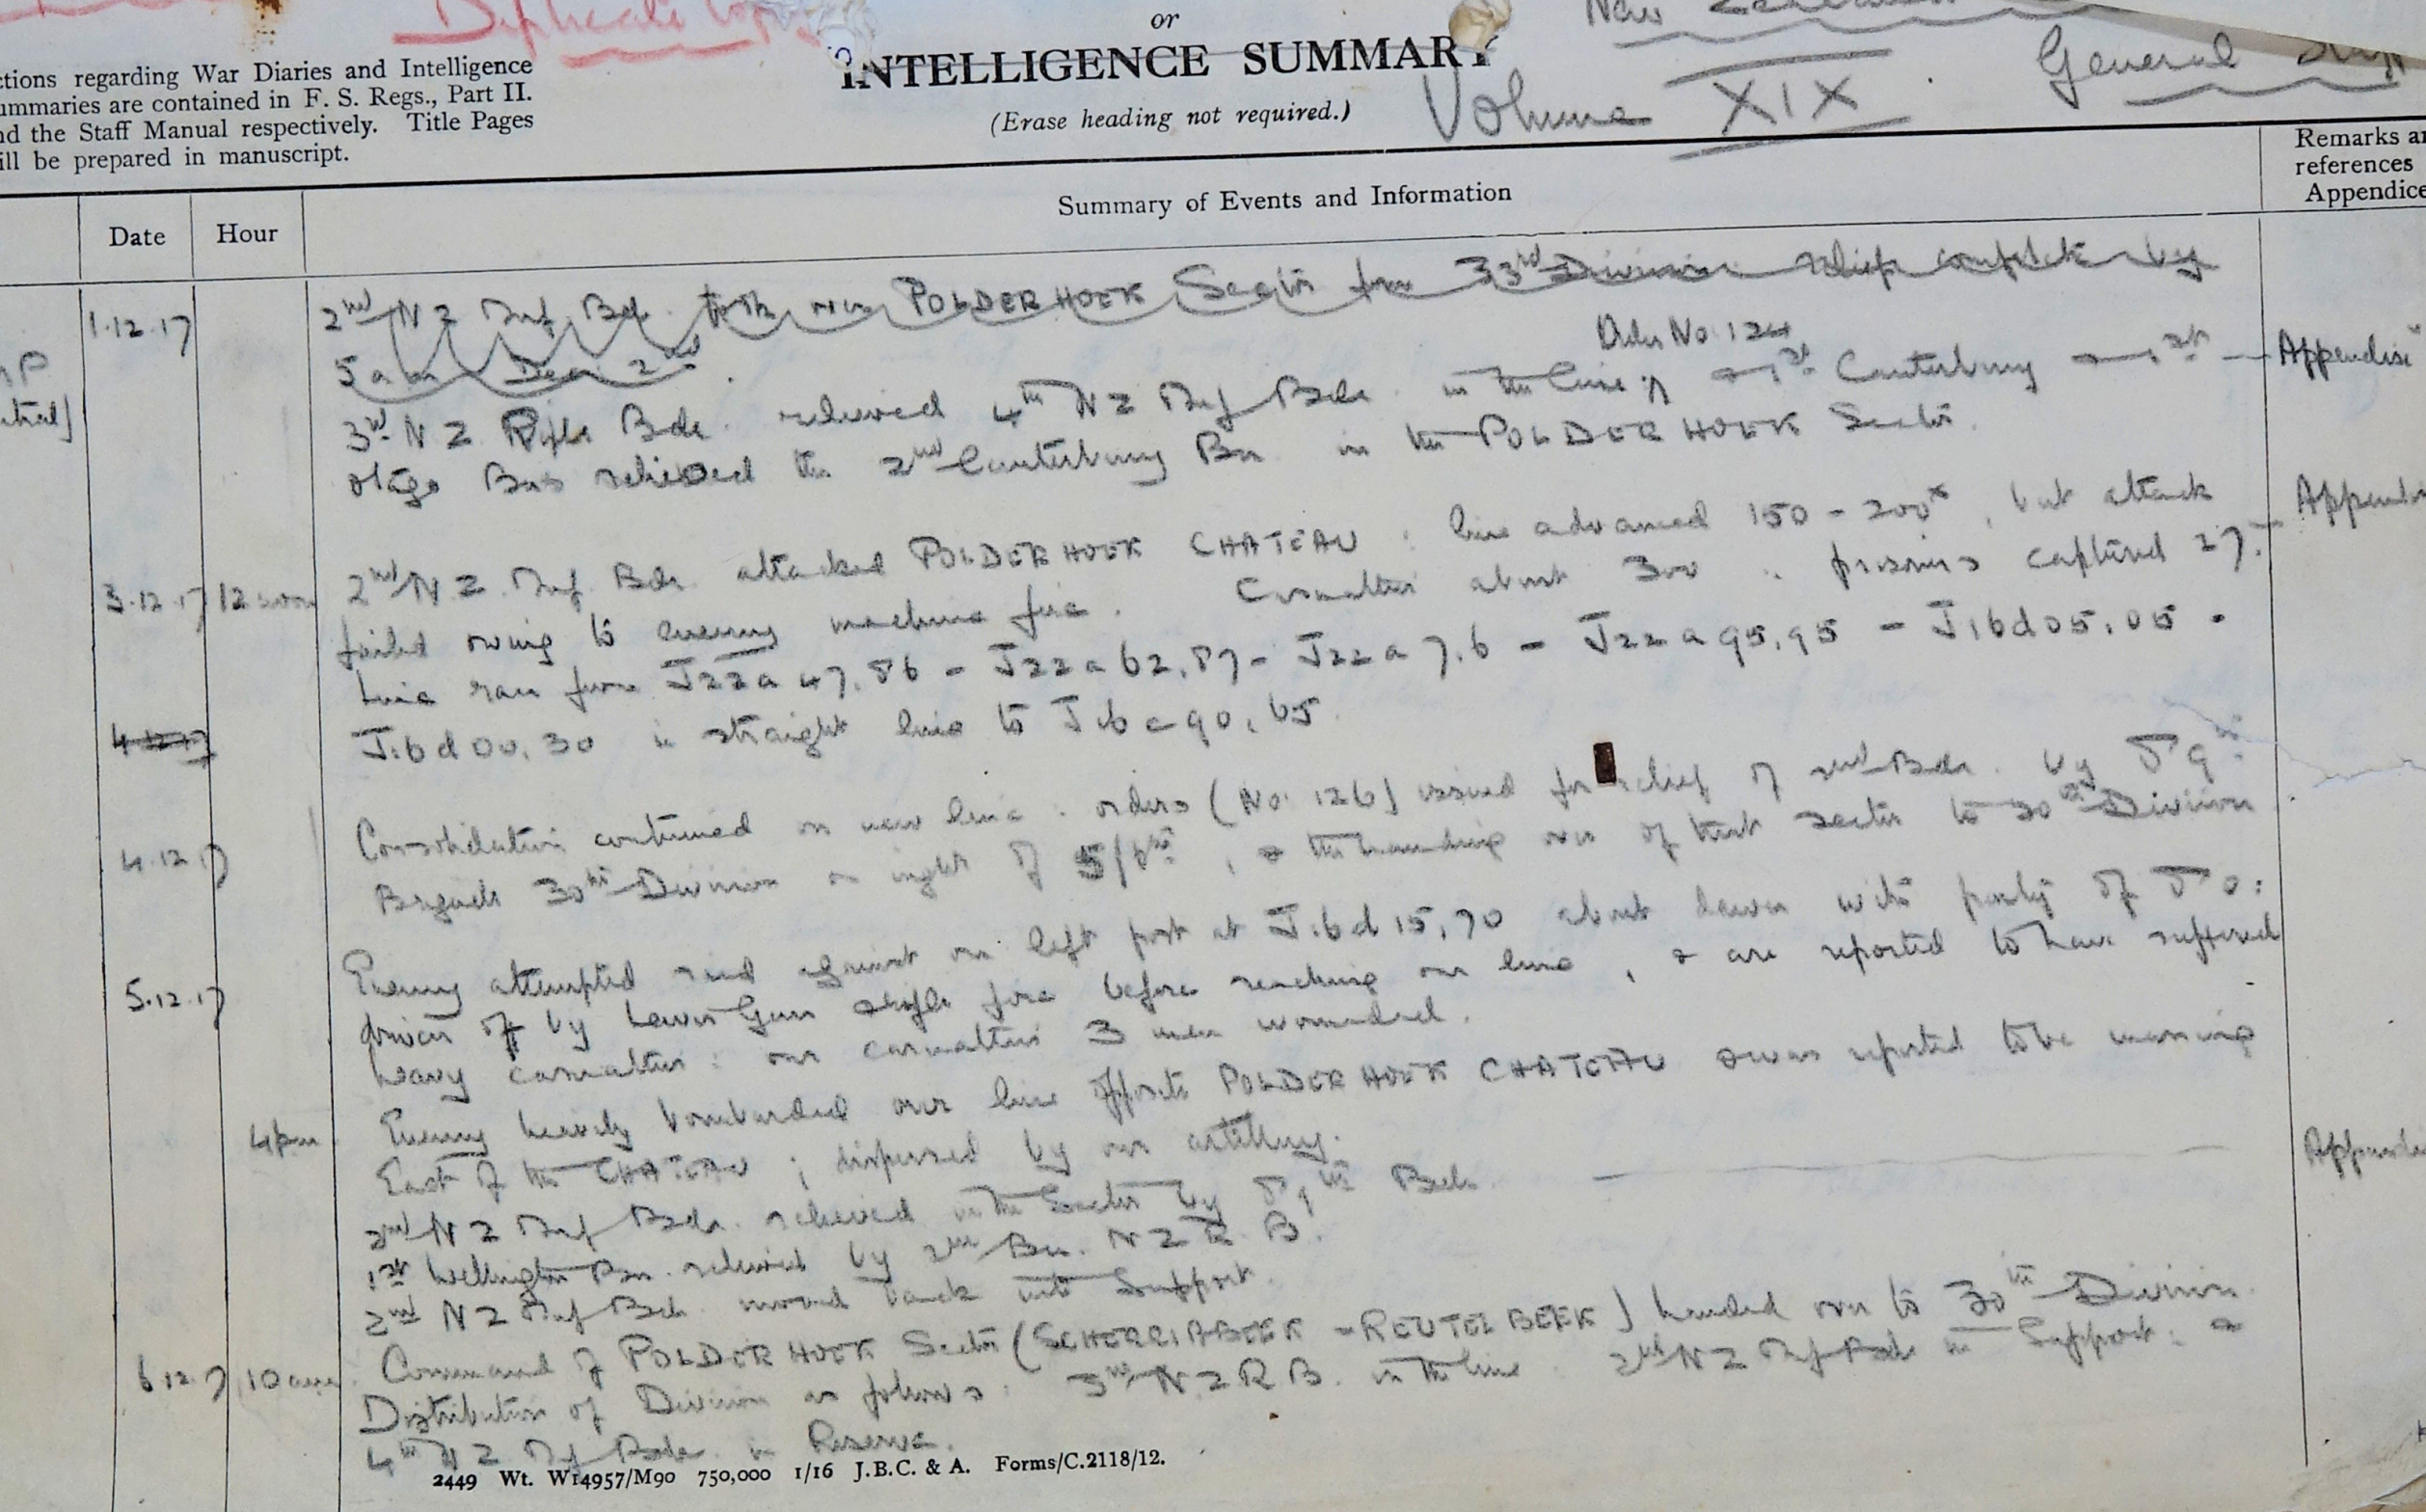 Duplicate Copy
or
INTELLIGENCE SUMMARY
(Erase heading not required.)
New
General
Volume XIX
ctions regarding War Diaries and Intelligence
ummaries are contained in F. S. Regs., Part II.
nd the Staff Manual respectively. Title Pages
ill be prepared in manuscript.
Date
Hour
Summary of Events and Information
Remarks an
references
Appendice
1.12.17
2nd N Z Inf Bde. took over POLDERHOEK Sector from 33rd Division relief complete by
5 am Dec 2nd.
Order No. 124
3rd N Z Rifle Bde. relieved 4th N Z Inf Bde. in the line; 1st Canterbury & 1st
Appendix
Otago Bns relieved the 2nd Canterbury Bn in the POLDERHOEK Sector.
3.12.17
12 noon
2nd N.Z. Inf. Bde. attacked POLDERHOEK CHATEAU: line advanced 150 - 200x, but attack
Appendi
failed owing to enemy machine fire. Casualties about 300: prisoners captured 27.
Line ran from J22a 47.86 - J22a 62.87 - J22a 7.6 - J22a 95.95 - J16d 05.05 -
J16d 00.30 in straight line to J16c 90.65.
4.12.17
4.12.17
Consolidation continued on new line: orders (No. 126) issued for relief of 2nd Bde. by 89th
Brigade 30th Division on night of 5/6th, & the handing over of that sector to 30th Division
5.12.17
Enemy attempted raid against our left post at J16d 15.70 about dawn with party of 50:
driven off by Lewis Gun & rifle fire before reaching our line, & are reported to have suffered
heavy casualties: our casualties 3 men wounded.
4 pm
Enemy heavily bombarded our line opposite POLDERHOEK CHATEAU & was reported to be massing
East of the CHATEAU; dispersed by our artillery.
2nd N Z Inf Bde. relieved in the Sector by 89th Bde.
Appendi
1st Wellington Bn. relieved by 2nd Bn. N Z R. B.
2nd N Z Inf Bde. moved back into Support.
6.12.17
10 am.
Command of POLDERHOEK Sector (SCHERRIABEEK - REUTELBEEK) handed over to 30th Division.
Distribution of Division as follows: 3rd N Z R B. in the line. 2nd N Z Inf Bde in Support: &
4th N Z Inf Bde. in Reserve.
2449 Wt. W14957/M90 750,000 1/16 J.B.C. & A. Forms/C.2118/12.